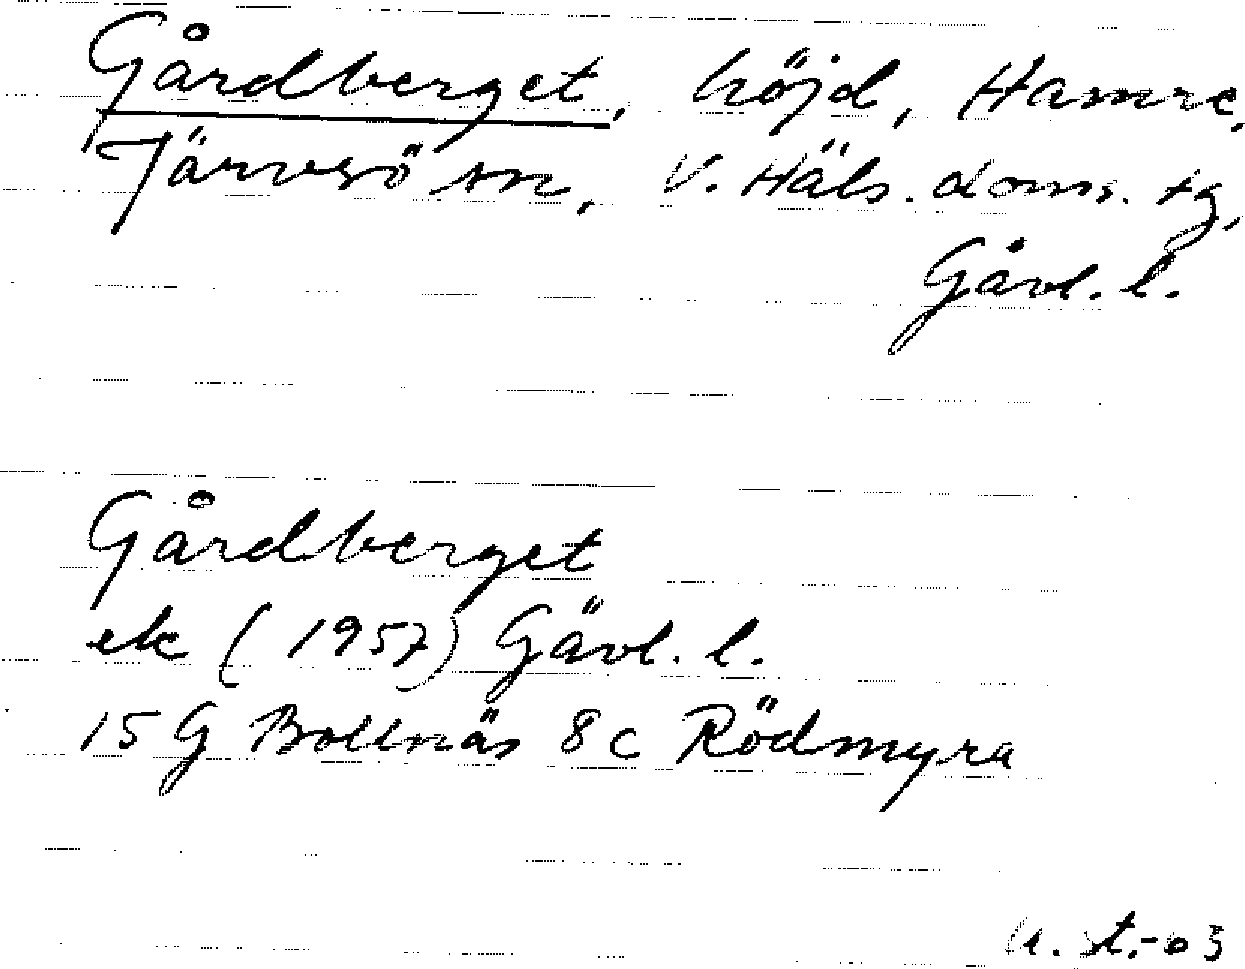 Gårdberget, höjd, Hamre,
Järvsö sn, V. Häls. doms. tg,
Gävl. l.
Gårdberget
ek (1957) Gävl. l.
15 G Bollnäs 8c Rödmyra
st.-03